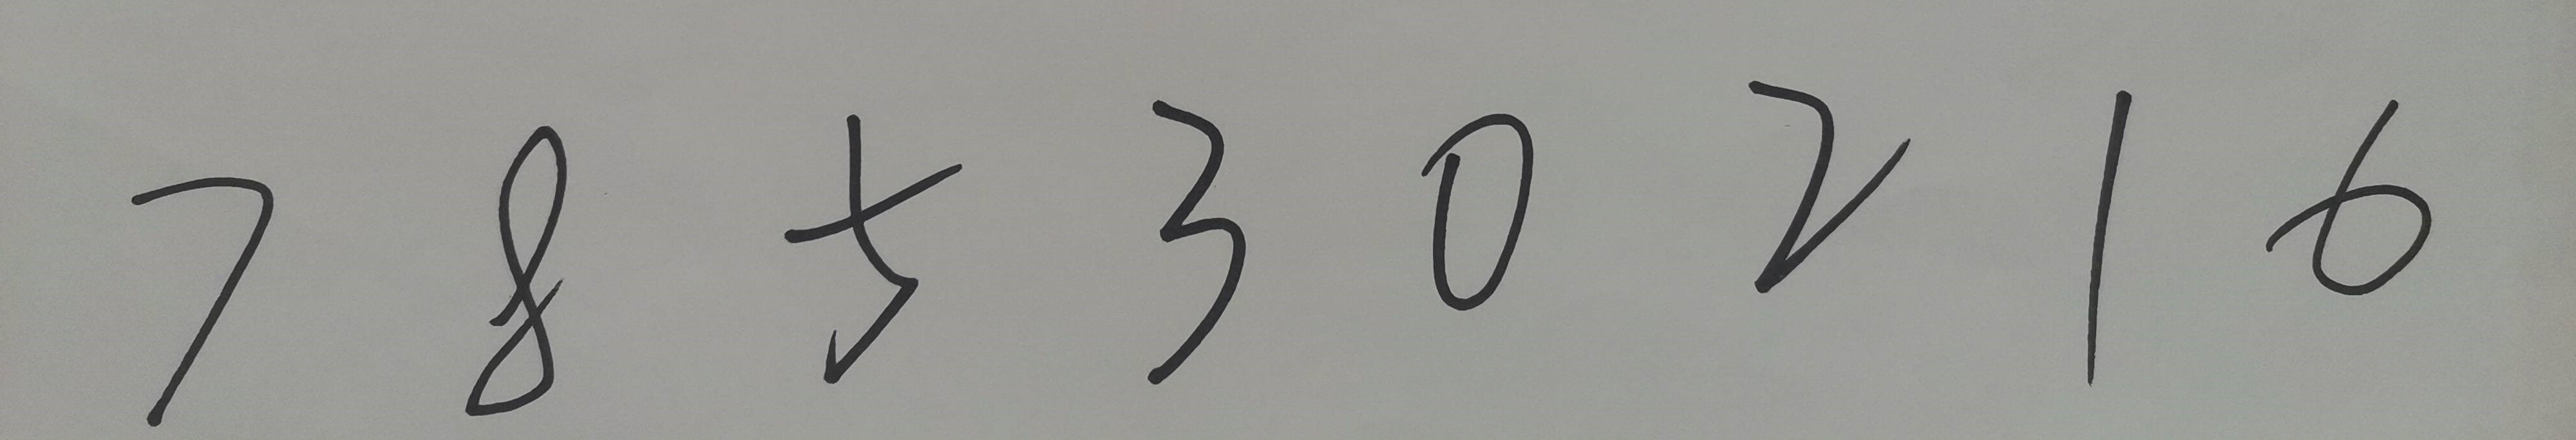 7 8 5 3 0 2 1 6